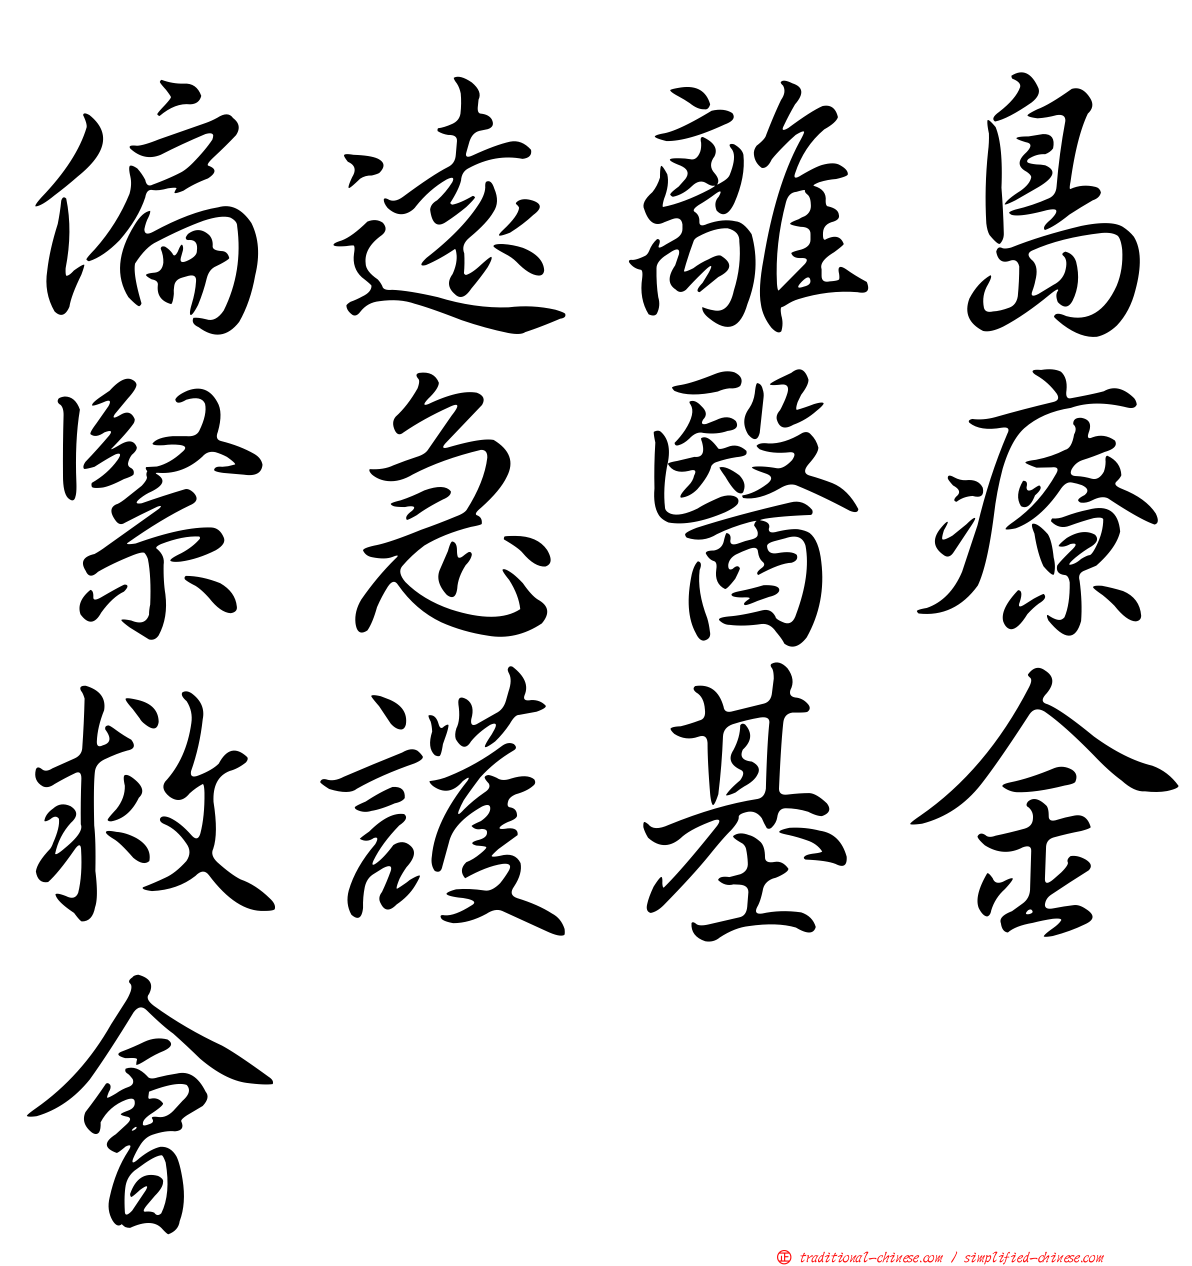 偏遠離島
緊急醫療
救護基金
會
正 traditional-chinese.com / simplified-chinese.com